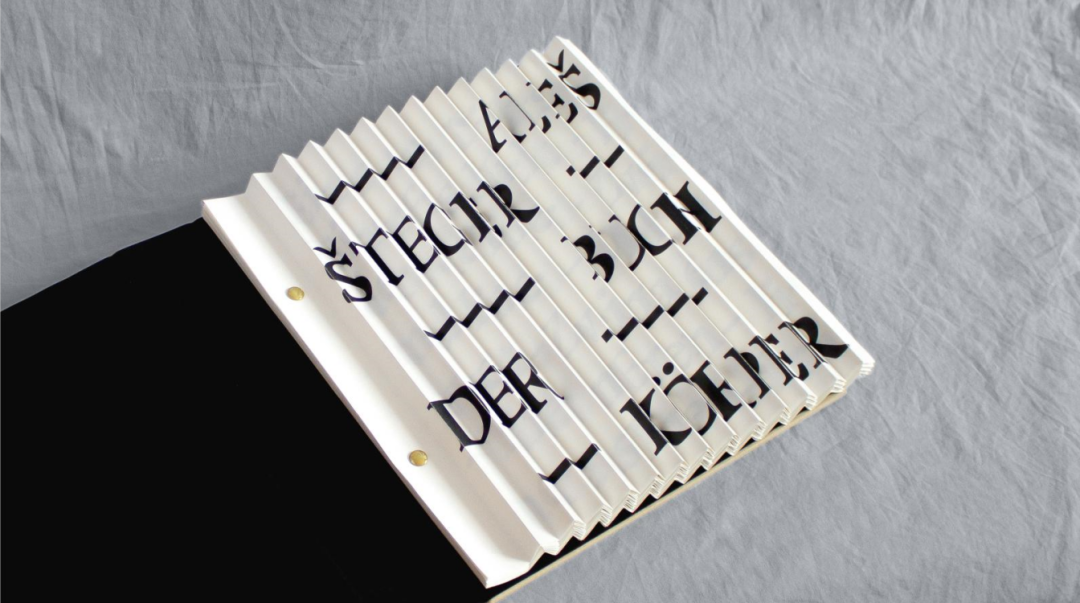 — ALEŠ
ŠTEGER —
— BUCH
DER —
— KÖRPER